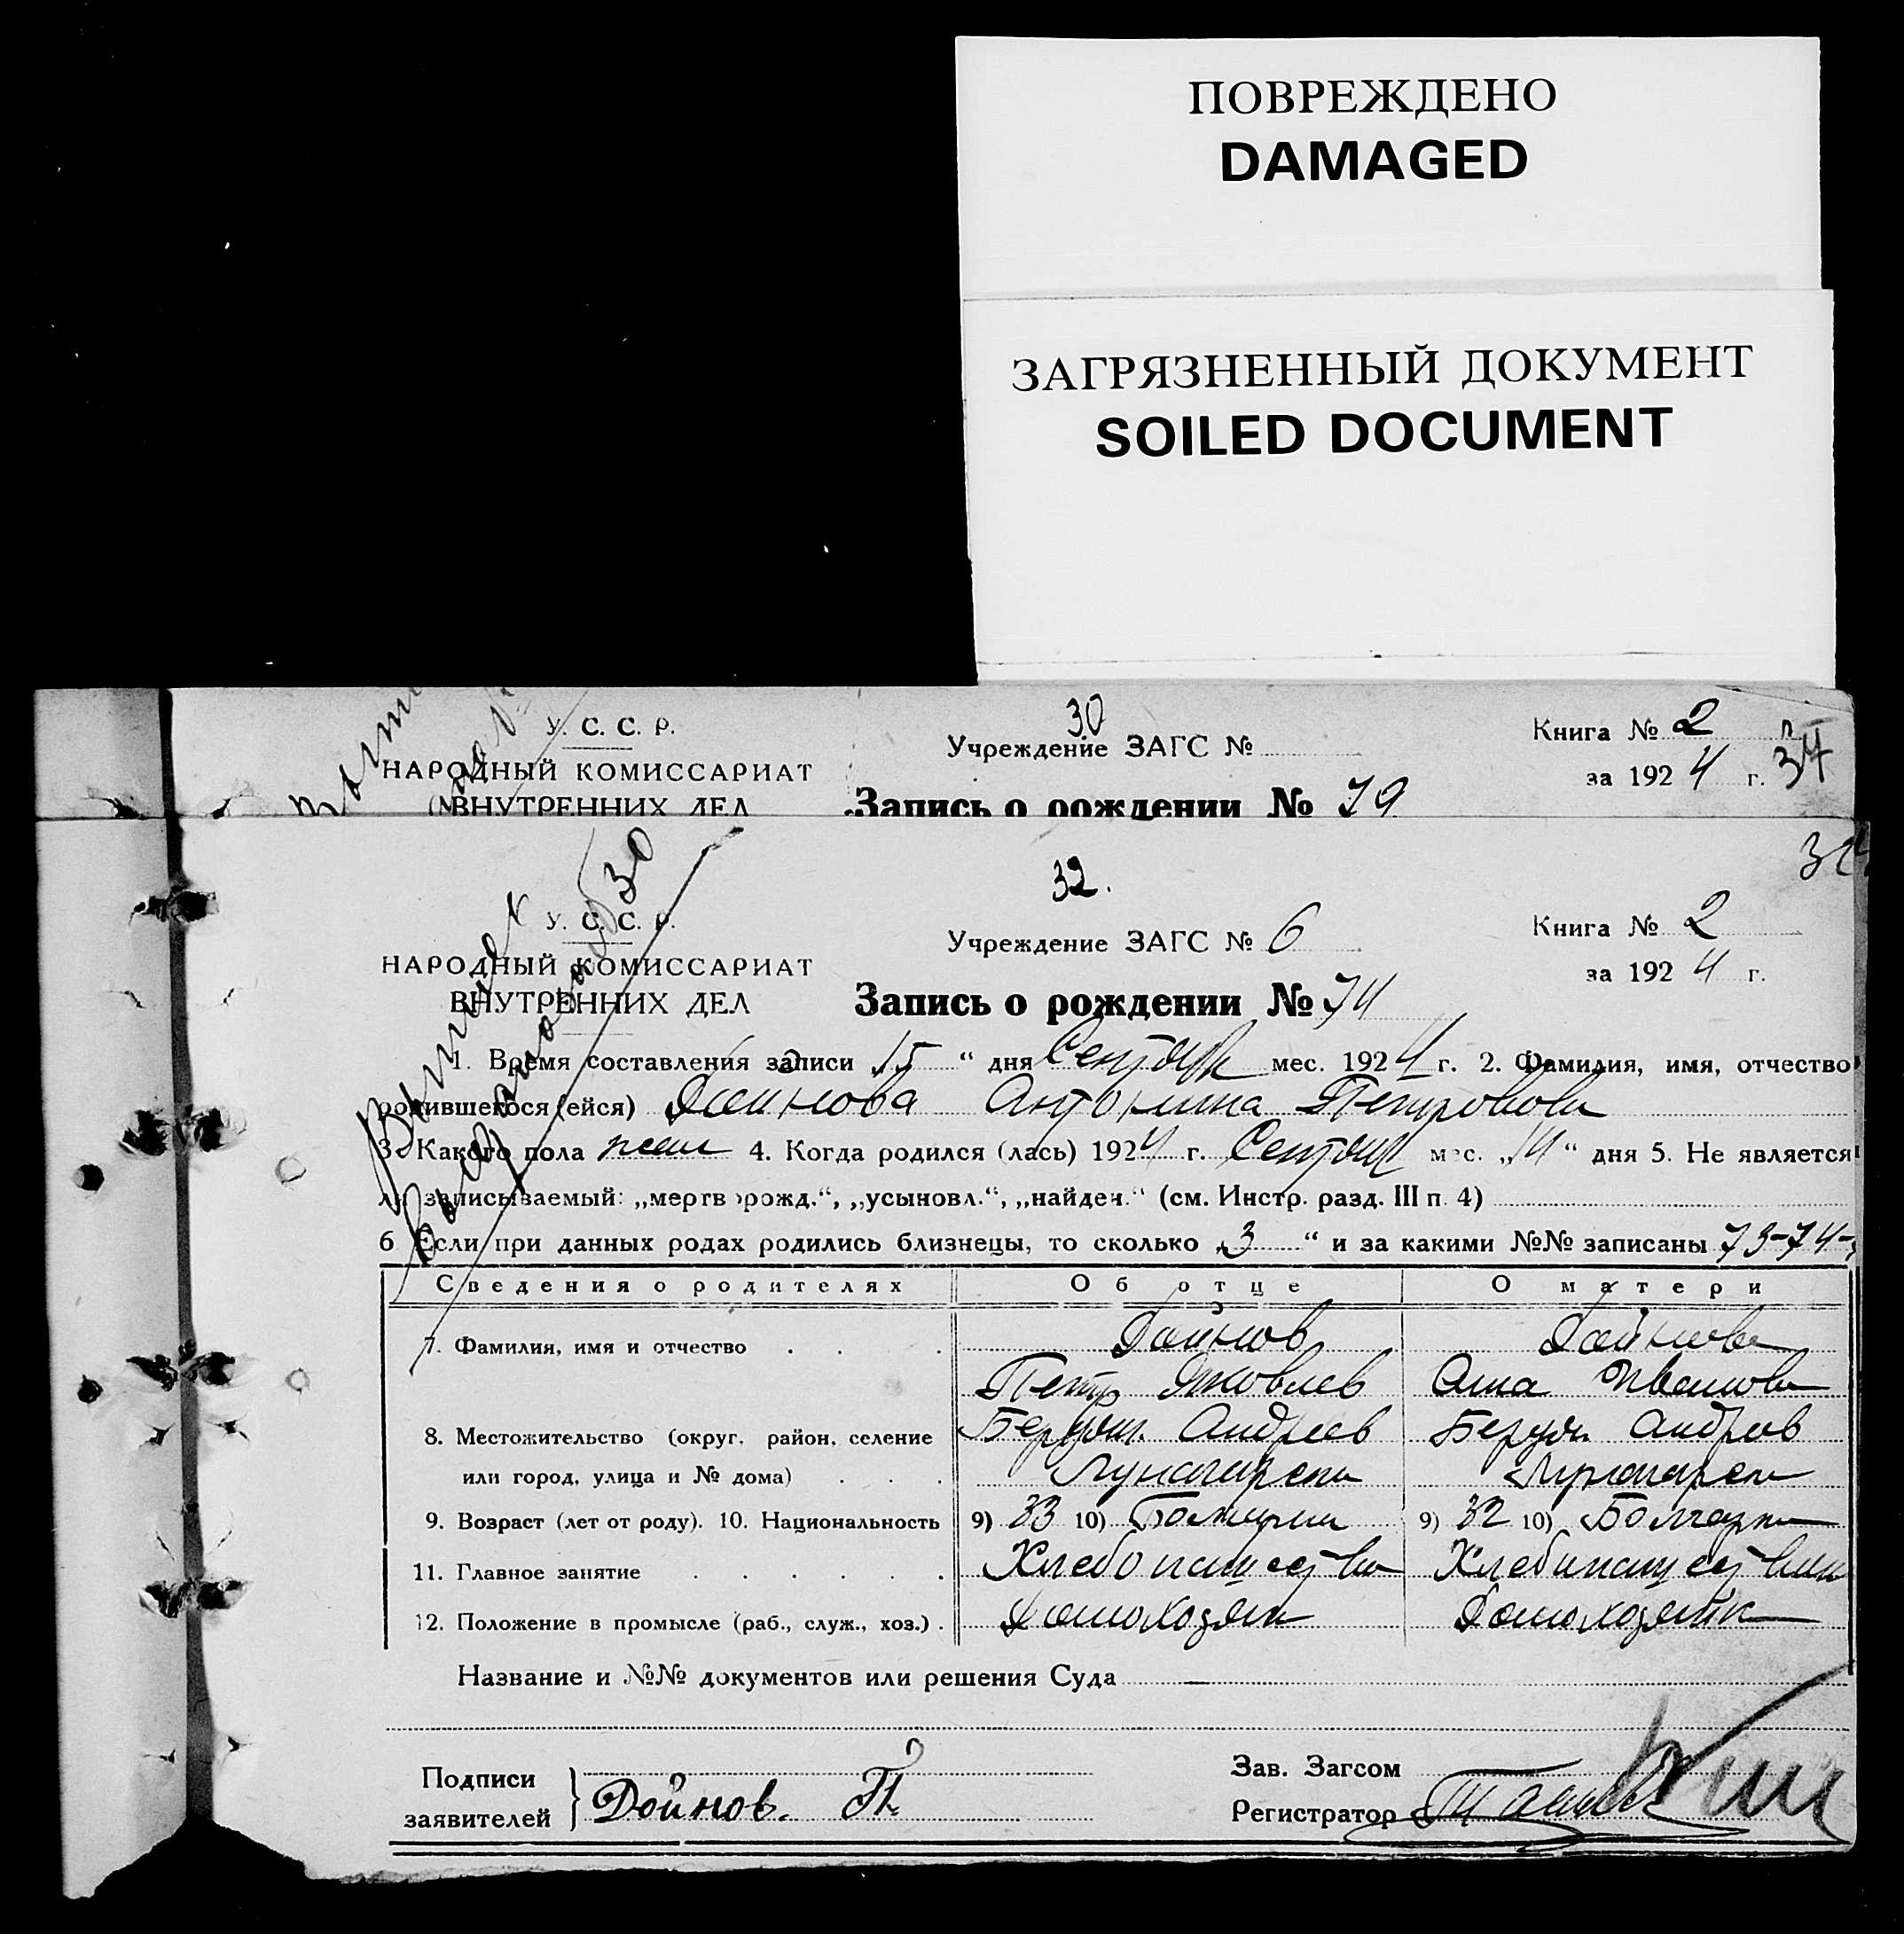 ПОВРЕЖДЕНО
DAMAGED
ЗАГРЯЗНЕННЫЙ ДОКУМЕНТ
SOILED DOCUMENT
30
У. С. С. Р.
Учреждение ЗАГС №
Книга № 2
НАРОДНЫЙ КОМИССАРИАТ
за 1924 г. 34
ВНУТРЕННИХ ДЕЛ
Запись о рождении № 79
32.
У. С. С. Р.
Учреждение ЗАГС № 6
Книга № 2
НАРОДНЫЙ КОМИССАРИАТ
за 1924 г.
ВНУТРЕННИХ ДЕЛ
Запись о рождении № 74
30
1. Время составления записи „15“ дня Сентобр мес. 1924 г. 2. Фамилия, имя, отчество
родившегося (ейся) Дойнова Антонина Петровова
3. Какого пола жен 4. Когда родился (лась) 1924 г. Сентобр мес. „14“ дня 5. Не является
ли записываемый: „мертворожд.“, „усыновл.“, „найден.“ (см. Инстр. разд. III п. 4)
6 Если при данных родах родились близнецы, то сколько „3“ и за какими №№ записаны 73-74-
Сведения о родителях Об отце О матери
7. Фамилия, имя и отчество Дойнов Дойнова
Петр Яковлев Анна Иванова
8. Местожительство (округ, район, селение Андреев Андреев
или город, улица и № дома)
9. Возраст (лет от роду). 10. Национальность 9) 33 10) 9) 32 10) Болгарка
11. Главное занятие Хлебопашество
12. Положение в промысле (раб., служ., хоз.) Домохозяин Домохозяйк
Название и №№ документов или решения Суда —
Подписи заявителей Дойнов. П.
Зав. Загсом
Регистратор